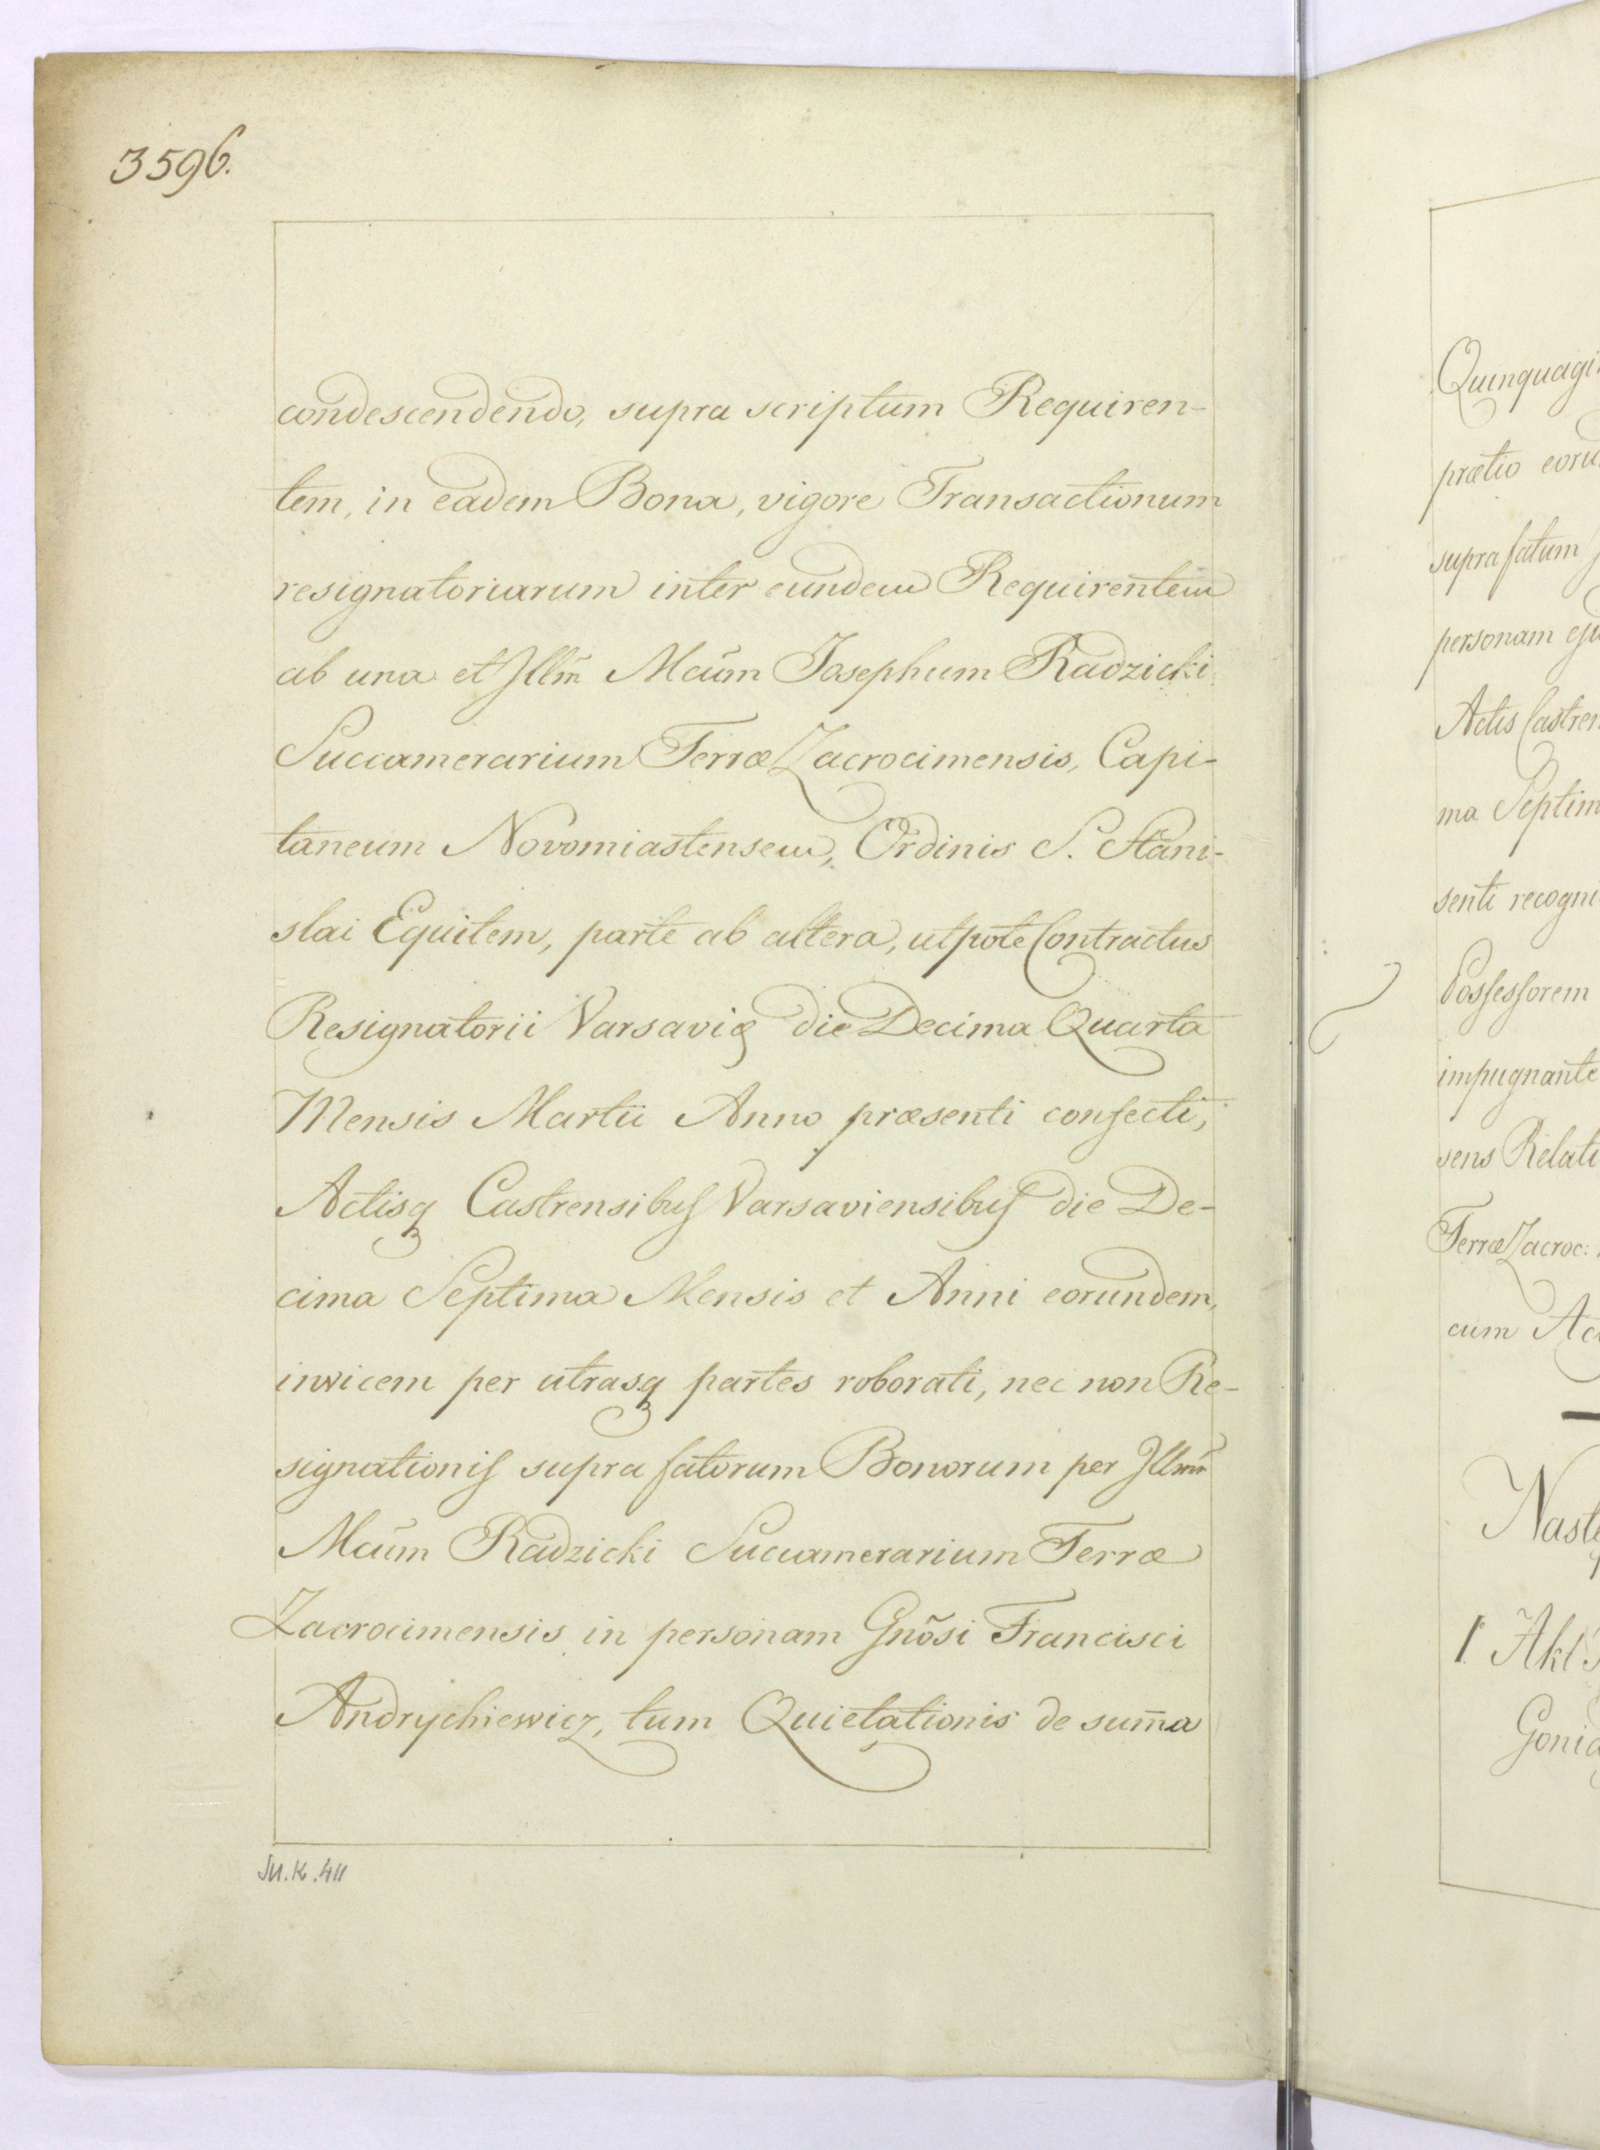 3596.
condescendendo, supra scriptum Requiren-
tem, in eadem Bona, vigore Transactionum
resignatoriarum inter eundem Requirentem
ab una et Jllm̃ Mcũm Josephum Radzicki
Succamerarium Terræ Zacrocimensis, Capi-
taneum Novomiastensem, Ordinis S. Stani-
slai Equitem, parte ab altera, utpote Contractus
Resignatorii Varsavię die Decima Quarta
Mensis Martii Anno præsenti confecti,
Actisq Castrensibus Varsaviensibus die De-
cima Septima Mensis et Anni eorundem,
invicem per utrasq partes roborati, nec non Re-
signationis supra fatorum Bonorum per Jllm̃
Mcũm Radzicki Succamerarium Terræ
Zacrocimensis in personam Gnõsi Francisci
Andrychiewicz, tum Quietationis de sum̃a
M.K. 411
Quinquagi
prætio eoru
supra fatum
personam eju
Actis Castren
ma Septim
senti recogni
Possessorem
impugnante
sens Relati
Terræ Zacroc:
cum Ac
Nastę
1 Akt
Gonią